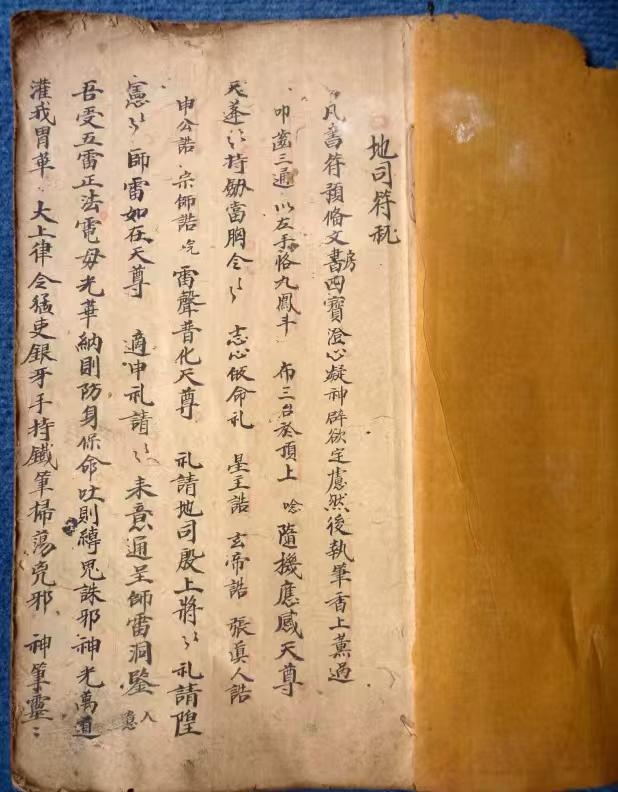 地司符秘
凡書符預備文房四寶澄心凝神辟欲定慮然後執筆香上薰過
叩齒三通 以左手恪九鳳斗 布三台於頂上 唸隨機應感天尊
天蓬 持劍當胸念 志心皈命礼 星主誥 玄帝誥 張真人誥
申公誥 宗師誥 雷聲普化天尊 礼請地司殷上將 礼請陛
憲 師雷如在天尊 適申礼請 来意通呈師雷洞鑒 入意
吾受五雷正法電母光華納則防身保命吐則縛鬼誅邪神光萬道
灌我胃草 大上律令猛吏銀牙手持鐵筆掃蕩兇邪 神筆靈